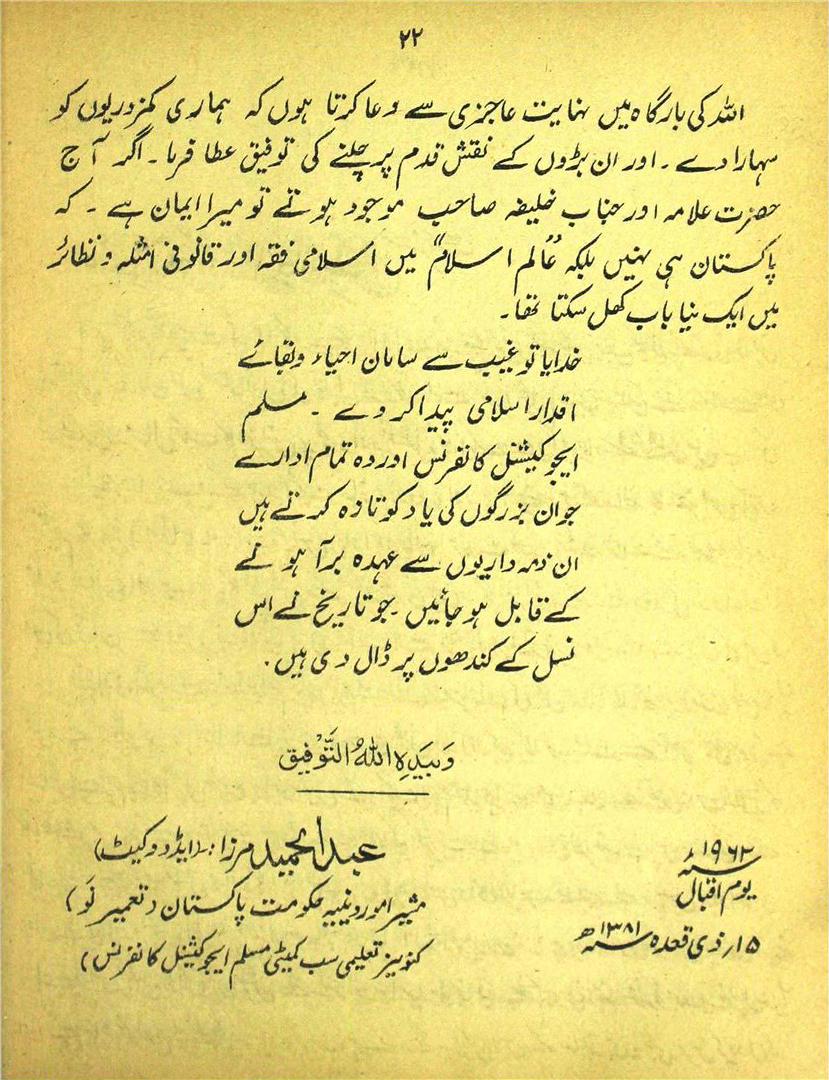 ۲۲
اللہ کی بارگاہ میں نہایت عاجزی سے دعا کرتا ہوں کہ ہماری کمزوریوں کو
سہارا دے ۔ اور ان بڑوں کے نقش قدم پر چلنے کی توفیق عطا فرما ۔ اگر آج
حضرت علامہ اور جناب خلیفہ صاحب موجود ہوتے تو میرا ایمان ہے ۔ کہ
پاکستان ہی نہیں بلکہ عالم اسلام میں اسلامی فقہ اور قانونی امثلہ و نظائر
میں ایک نیا باب کھل سکتا تھا۔
خدایا تو غیب سے سامان احیاء و بقائے
اقدار اسلامی پیدا کر دے ۔ مسلم
ایجوکیشنل کانفرنس اور وہ تمام ادارے
جو ان بزرگوں کی یاد کو تازہ کرتے ہیں
ان ذمہ داریوں سے عہدہ برآ ہونے
کے قابل ہو جائیں ۔ جو تاریخ نے اس
نسل کے کندھوں پر ڈال دی ہیں ۔
وَبِیَدِہِ اللہُ التَّوْفِیق
عبد الحمید مرزا :۔ (ایڈووکیٹ)
مشیر امور دینیہ حکومت پاکستان (تعمیر نَو)
کنوینر تعلیمی سب کمیٹی مسلم ایجوکیشنل کانفرنس)
سنہ ۱۹۶۲ء
یوم اقبال
۱۵؍ ذی قعدہ سنہ ۱۳۸۱ھ